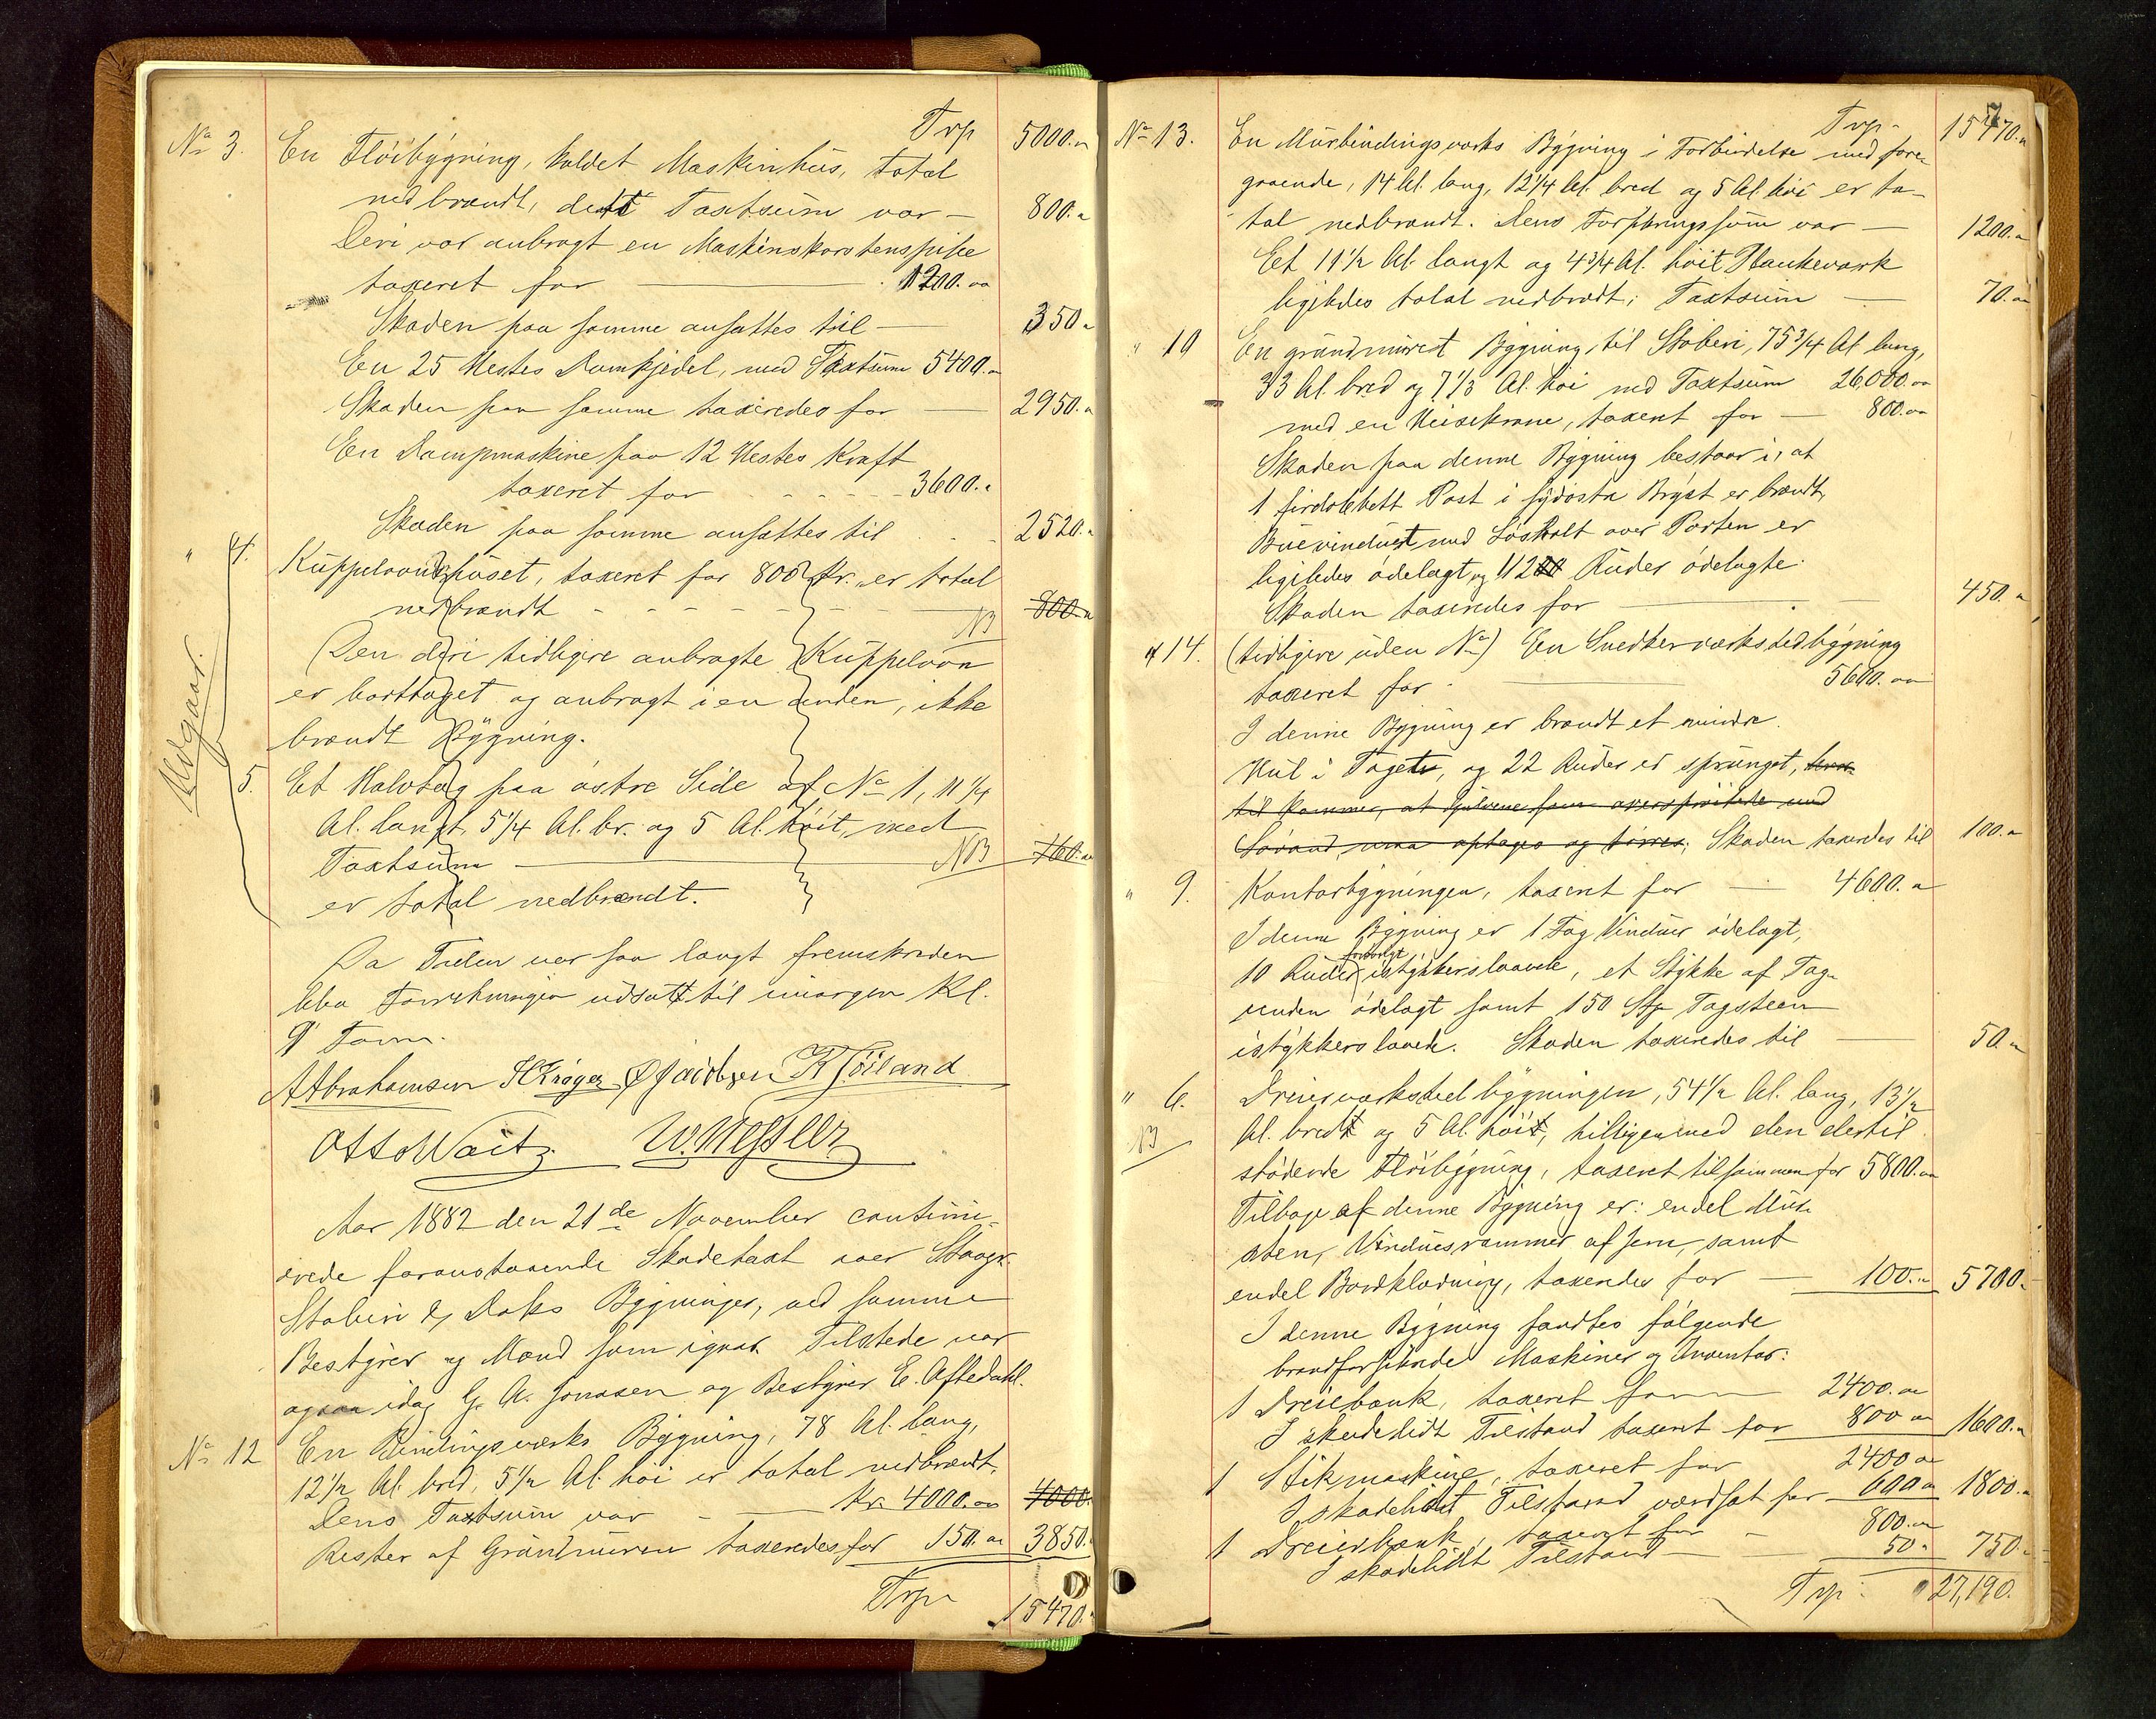 Trp 5000."
No 3. En Flöibygning, kaldet Maskinhus, total
nedbrændt, dets Taxtsum var – 800."
Deri var anbragt en Maskinskorstenspibe
taxeret for — 1200.00
Skaden paa samme ansattes til — 350."
En 25 Hestes Damkjedel, med Taxtsum 5400."
Skaden paa samme taxeredes for — 2950."
En Dampmaskine paa 12 Hestes Kraft
taxeret for - - - - 3600."
Skaden paa samme ansattes til - - 2520."
" 4. Kuppelovnshuset, taxeret for 800 Kr. er total
nedbrændt - - - - - 800."
NB
(Den deri tidligere anbragte Kuppelovn
er borttaget og anbragt i en anden, ikke
brændt Bygning.
Udgaar.
5. Et Halvtag paa östre Side af No 1, 11 1/4
Al. langt, 5 1/4 Al. br. og 5 Al. höit, med
Taxtsum — NB 160."
er total nedbrændt.
Da Tiden var saa langt fremskreden
blev Forretningen udsatt til imorgen Kl.
9 Form.
A Abrahamsen H Kröger O Jacobsen K Jöiland
Otto Waitz. W. Hessler
Aar 1882 den 21de November continu-
erede foranstaaende Skadetaxt over Stavgr.
Stöberi & Doks Bygninger, ved samme
Bestyrer og Mænd som igaar. Tilstede var
ogsaa idag G. A. Jonasen og Bestyrer E. Aftedahl.
No 12 En Bindingsværks Bygning, 78 Al. lang,
12 1/2 Al. bred, 5 1/2 Al. höi er total nedbrændt,
Dens Taxtsum var - — Kr. 4000.00 4000.
Rester af Grundmuren taxeredes for 150.00 3850.
Trp 15470."
7
Trp. 15470."
No 13. En Murbindingsværks Bygning i Forbindelse med fore-
gaaende, 14 Al. lang, 12 1/4 Al. bred og 5 Al. höi er to-
tal nedbrændt. Dens Forsikringssum var — 1200."
Et 11 1/2 Al. langt og 4 3/4 Al. höit Plankeværk
ligeledes total nedbrændt; Taxtsum — 70."
" 10 En grundmuret Bygning til Stöberi, 75 3/4 Al lang,
33 Al. bred og 7 1/3 Al. höi med Taxtsum 26,000.00
med en Heisekrane, taxeret for — 800.00
Skaden paa denne Bygning bestaar i, at
1 firdobbelt Post i sydöstre Bryst er brændt,
Buevinduet med Losholt over Porten er
ligeledes ödelagt, og 112 Ruder ödelagte.
Skaden taxeredes for — 450."
" 14. (tidligere uden No) En Snedkerværkstedbygning
taxeret for - — 5600.00
I denne Bygning er brændt et mindre
Hul i Taget, og 22 Ruder er sprunget, hver-
til kommer, at Gulvene som overspröitede med
Sövand, maa optages og törres; Skaden taxeredes til 100."
" 9. Kontorbygningen, taxeret for — 4600."
I denne Bygning er 1 Fag Vinduer ödelagt,
10 Ruder forövrigt istykkerslaaede, et Stykke af Tag-
renden ödelagt samt 150 Stk Tagsteen
istykkerslaaede. Skaden taxeredes til — 50."
" 6. Dreierværkstedbygningen, 54 1/2 Al. lang, 13 1/2
NB Al. bredt og 5 Al. höit, tilligemed den dertil
stödende Flöibygning, taxeret tilsammen for 5800."
Tilbage af denne Bygning er: endel Mur-
sten, Vinduesrammer af Jern, samt
endel Bordklædning, taxeredes for — 100." 5700."
I denne Bygning fandtes fölgende
brandforsikrede Maskiner og Inventar:
1 Dreiebænk, taxeret for — 2400.00
I skadelidt Tilstand taxeret for 800 00 1600."
1 Stikmaskine, taxeret for 2400 00
I skadelidt Tilstand værdsat for 600 00 1800."
1 Dreiebænk, taxeret for – 800.00
I skadelidt Tilstand — 50." 750."
Trp: 27,190.